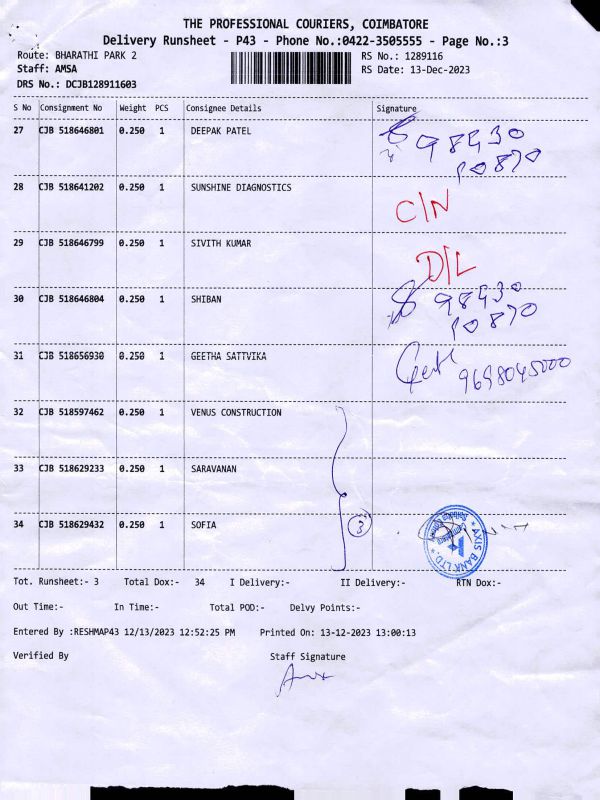 THE PROFESSIONAL COURIERS, COIMBATORE
Delivery Runsheet - P43 - Phone No.:0422-3505555 - Page No.:3
Route: BHARATHI PARK 2 RS No.: 1289116
Staff: AMSA RS Date: 13-Dec-2023
DRS No.: DCJB128911603
S No Consignment No Weight PCS Consignee Details Signature
27 CJB 518646801 0.250 1 DEEPAK PATEL 98430
10870
28 CJB 518641202 0.250 1 SUNSHINE DIAGNOSTICS C/N
29 CJB 518646799 0.250 1 SIVITH KUMAR D/L
30 CJB 518646804 0.250 1 SHIBAN 98430
10870
31 CJB 518656930 0.250 1 GEETHA SATTVIKA 9698045000
32 CJB 518597462 0.250 1 VENUS CONSTRUCTION
33 CJB 518629233 0.250 1 SARAVANAN
34 CJB 518629432 0.250 1 SOFIA 3
AXIS BANK LTD.
Tot. Runsheet:- 3 Total Dox:- 34 I Delivery:- II Delivery:- RTN Dox:-
Out Time:- In Time:- Total POD:- Delvy Points:-
Entered By :RESHMAP43 12/13/2023 12:52:25 PM Printed On: 13-12-2023 13:00:13
Verified By Staff Signature